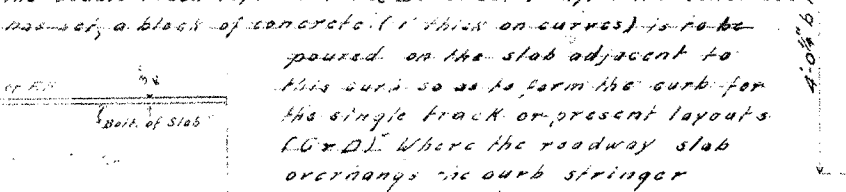 has set, a block of concrete (1' thick on curves) is to be
poured on the slab adjacent to
this curb so as to form the curb for
the single track or present layouts
(G & D). Where the roadway slab
overhangs the curb stringer
Bott. of Slab